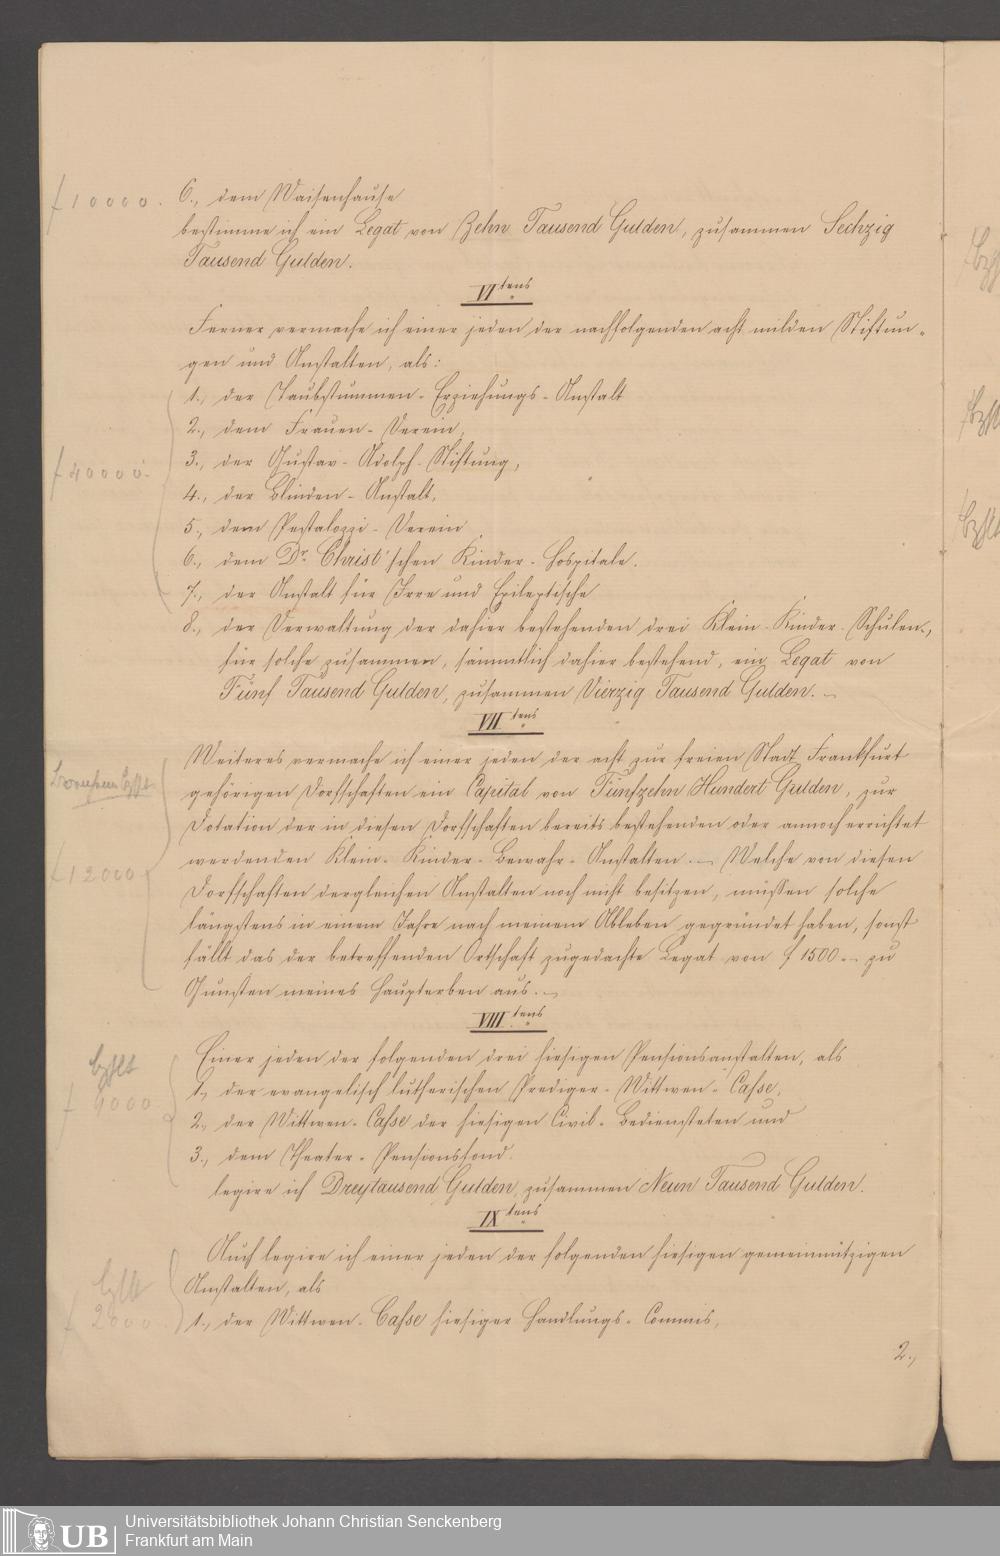 f 10000. 6., dem Waisenhause
bestimme ich ein Legat von Zehn Tausend Gulden, zusammen Sechzig
Tausend Gulden.
VI tens
Ferner vermache ich einer jeden der nachfolgenden acht milden Stiftun-
gen und Anstalten, als:
1., der Taubstummen-Erziehungs-Anstalt
2., dem Frauen-Verein,
3., der Gustav-Adolph-Stiftung,
f 40000.-
4., der Blinden-Anstalt,
5., dem Pestalozzi-Verein
6., dem Dr. Christ'schen Kinder-Hospitale.
7., der Anstalt für Irre und Epileptische
8., der Verwaltung der dahier bestehenden drei Klein-Kinder-Schulen.,
für solche zusammen, sämmtlich dahier bestehend, ein Legat von
Fünf Tausend Gulden, zusammen Vierzig Tausend Gulden. –
VII tens
Weiteres vermache ich einer jeden der acht zur freien Stadt Frankfurt
gehörigen Dorfschaften ein Capital von Fünfzehn Hundert Gulden, zur
Dotation der in diesen Dorfschaften bereits bestehenden oder annoch errichtet
werdenden Klein-Kinder-Bewahr-Anstalten. – Welche von diesen
f 12000
Dorfschaften dergleichen Anstalten noch nicht besitzen, müssen solche
längstens in einem Jahre nach meinem Ableben gegründet haben, sonst
fällt das der betreffenden Ortschaft zugedachte Legat von f 1500.– zu
Gunsten meines Haupterben aus. –
VIII tens
Einer jeden der folgenden drei hiesigen Pensionsanstalten, als
bzhlt
1., der evangelisch lutherischen Prediger-Wittwen-Casse,
f 9000
2., der Wittwen-Casse der hiesigen Civil-Bediensteten und
3., dem Theater-Pensionsfond.
legire ich Dreytausend Gulden, zusammen Neun Tausend Gulden.
IX tens
Auch legire ich einer jeden der folgenden hiesigen gemeinnützigen
Anstalten, als
bzhlt
f 2000.
1., der Wittwen-Casse hiesiger Handlungs-Commis,
2.,
UB Universitätsbibliothek Johann Christian Senckenberg
Frankfurt am Main